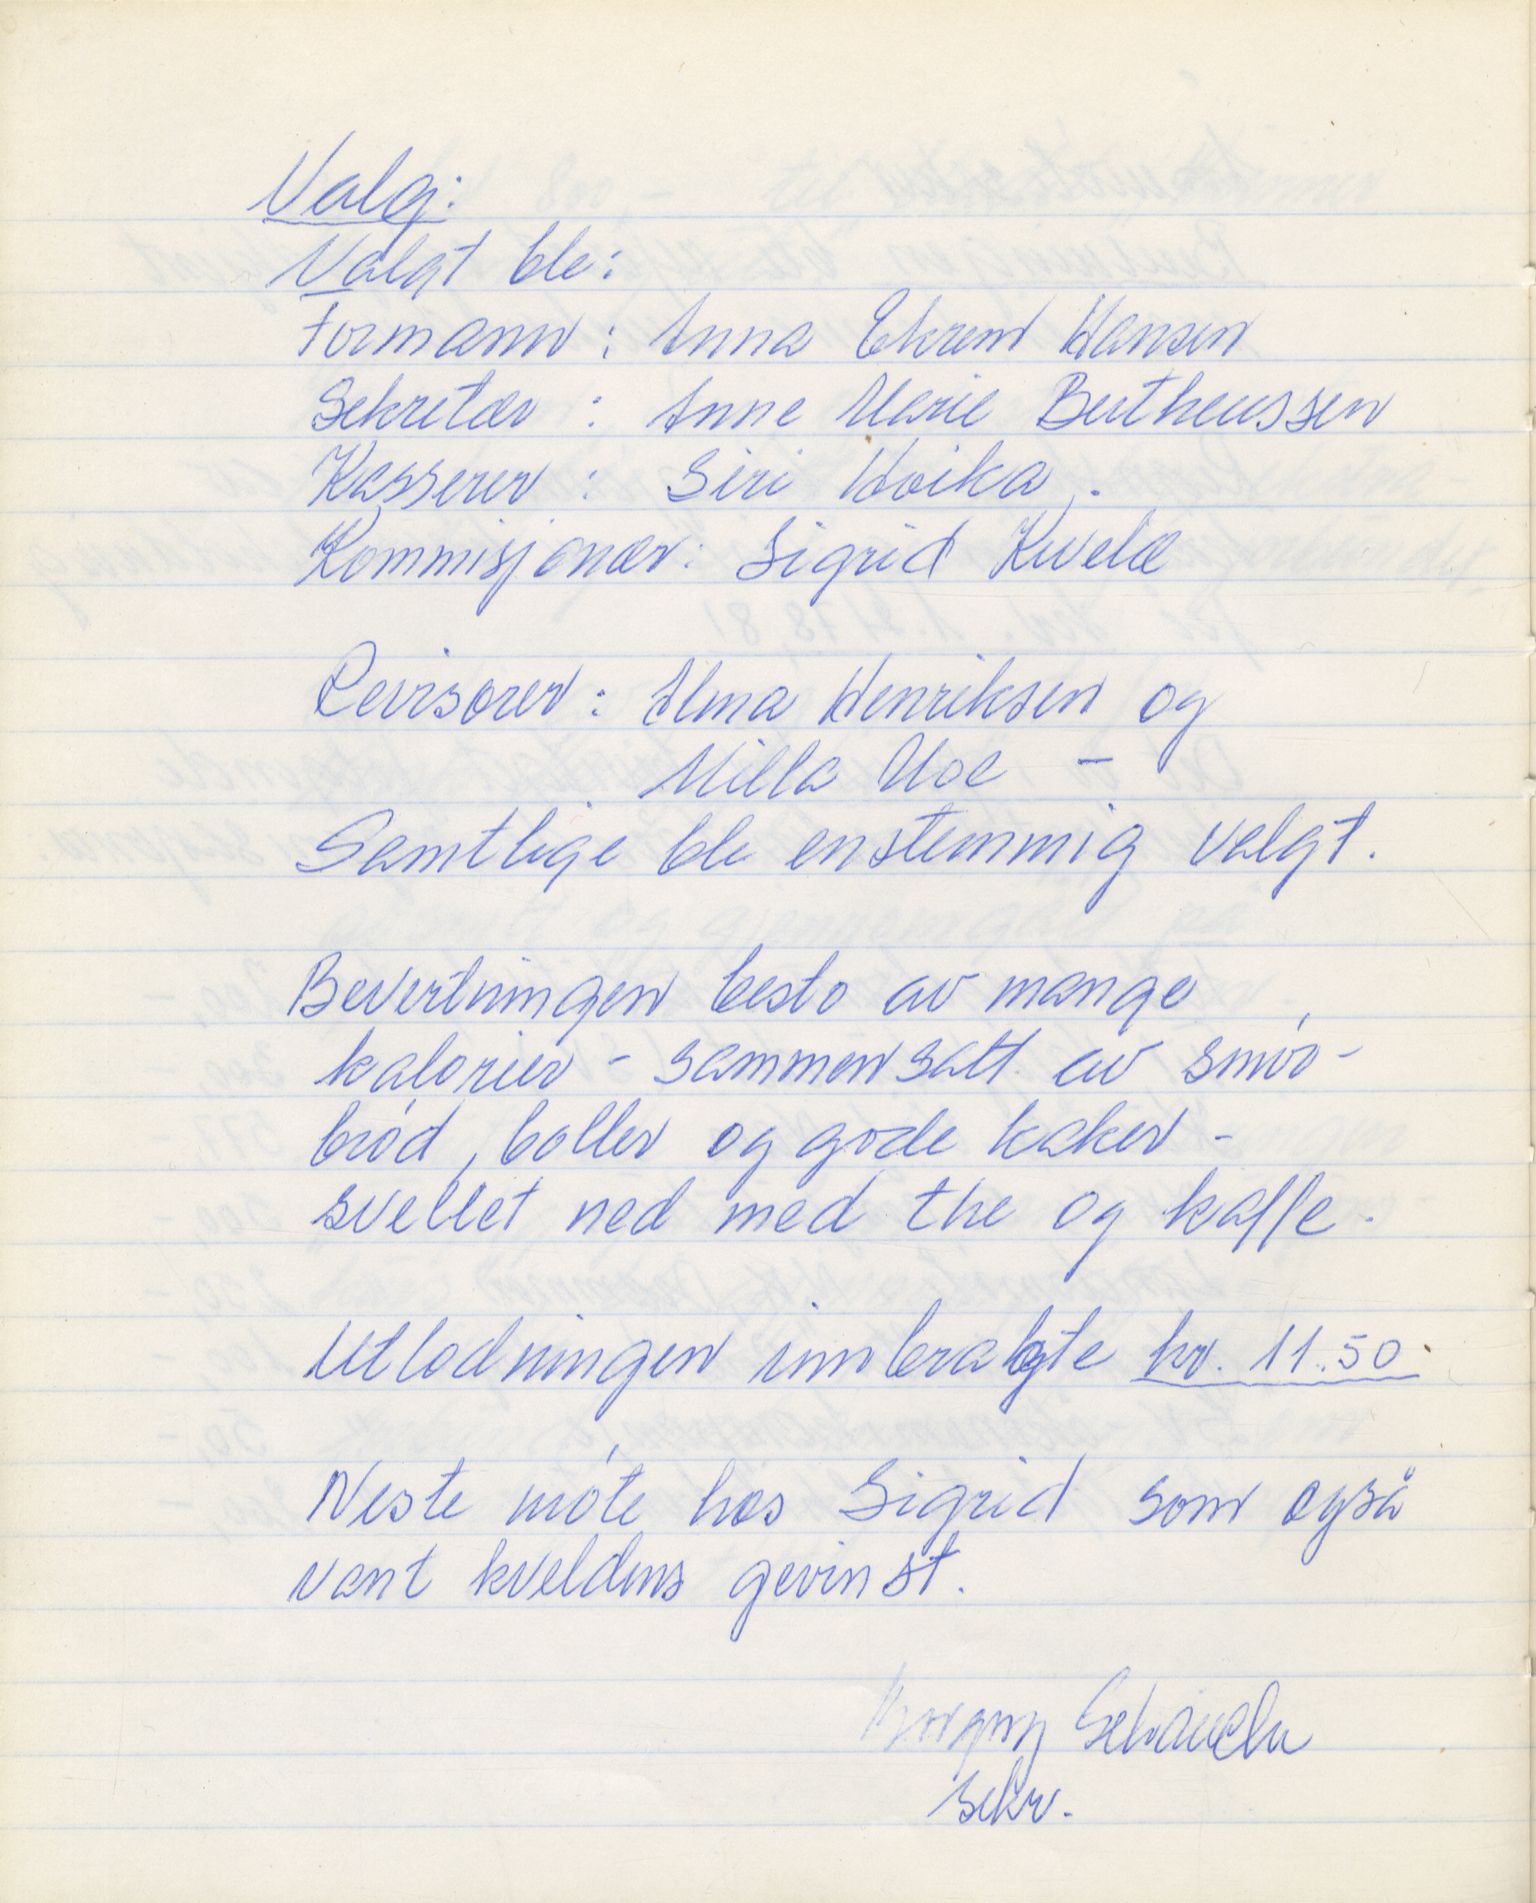 Valg:
Valgt ble:
Formann: Anna Ekrem Hansen
Sekretær: Anne Marie Bertheussen
Kasserer: Siri Hoika.
Kommisjonær: Sigrid Kvelæ
Revisorer: Alma Henriksen og
Milla Moe –
Samtlige ble enstemmig valgt.
Bevertningen besto av mange
kalorier – sammensatt av smør-
brød, boller og gode kaker –
svellet ned med the og kaffe.
Utlodningen innbragte kr. 11.50.
Neste møte hos Sigrid som også
vant kveldens gevinst.
Borgny
Sekr.